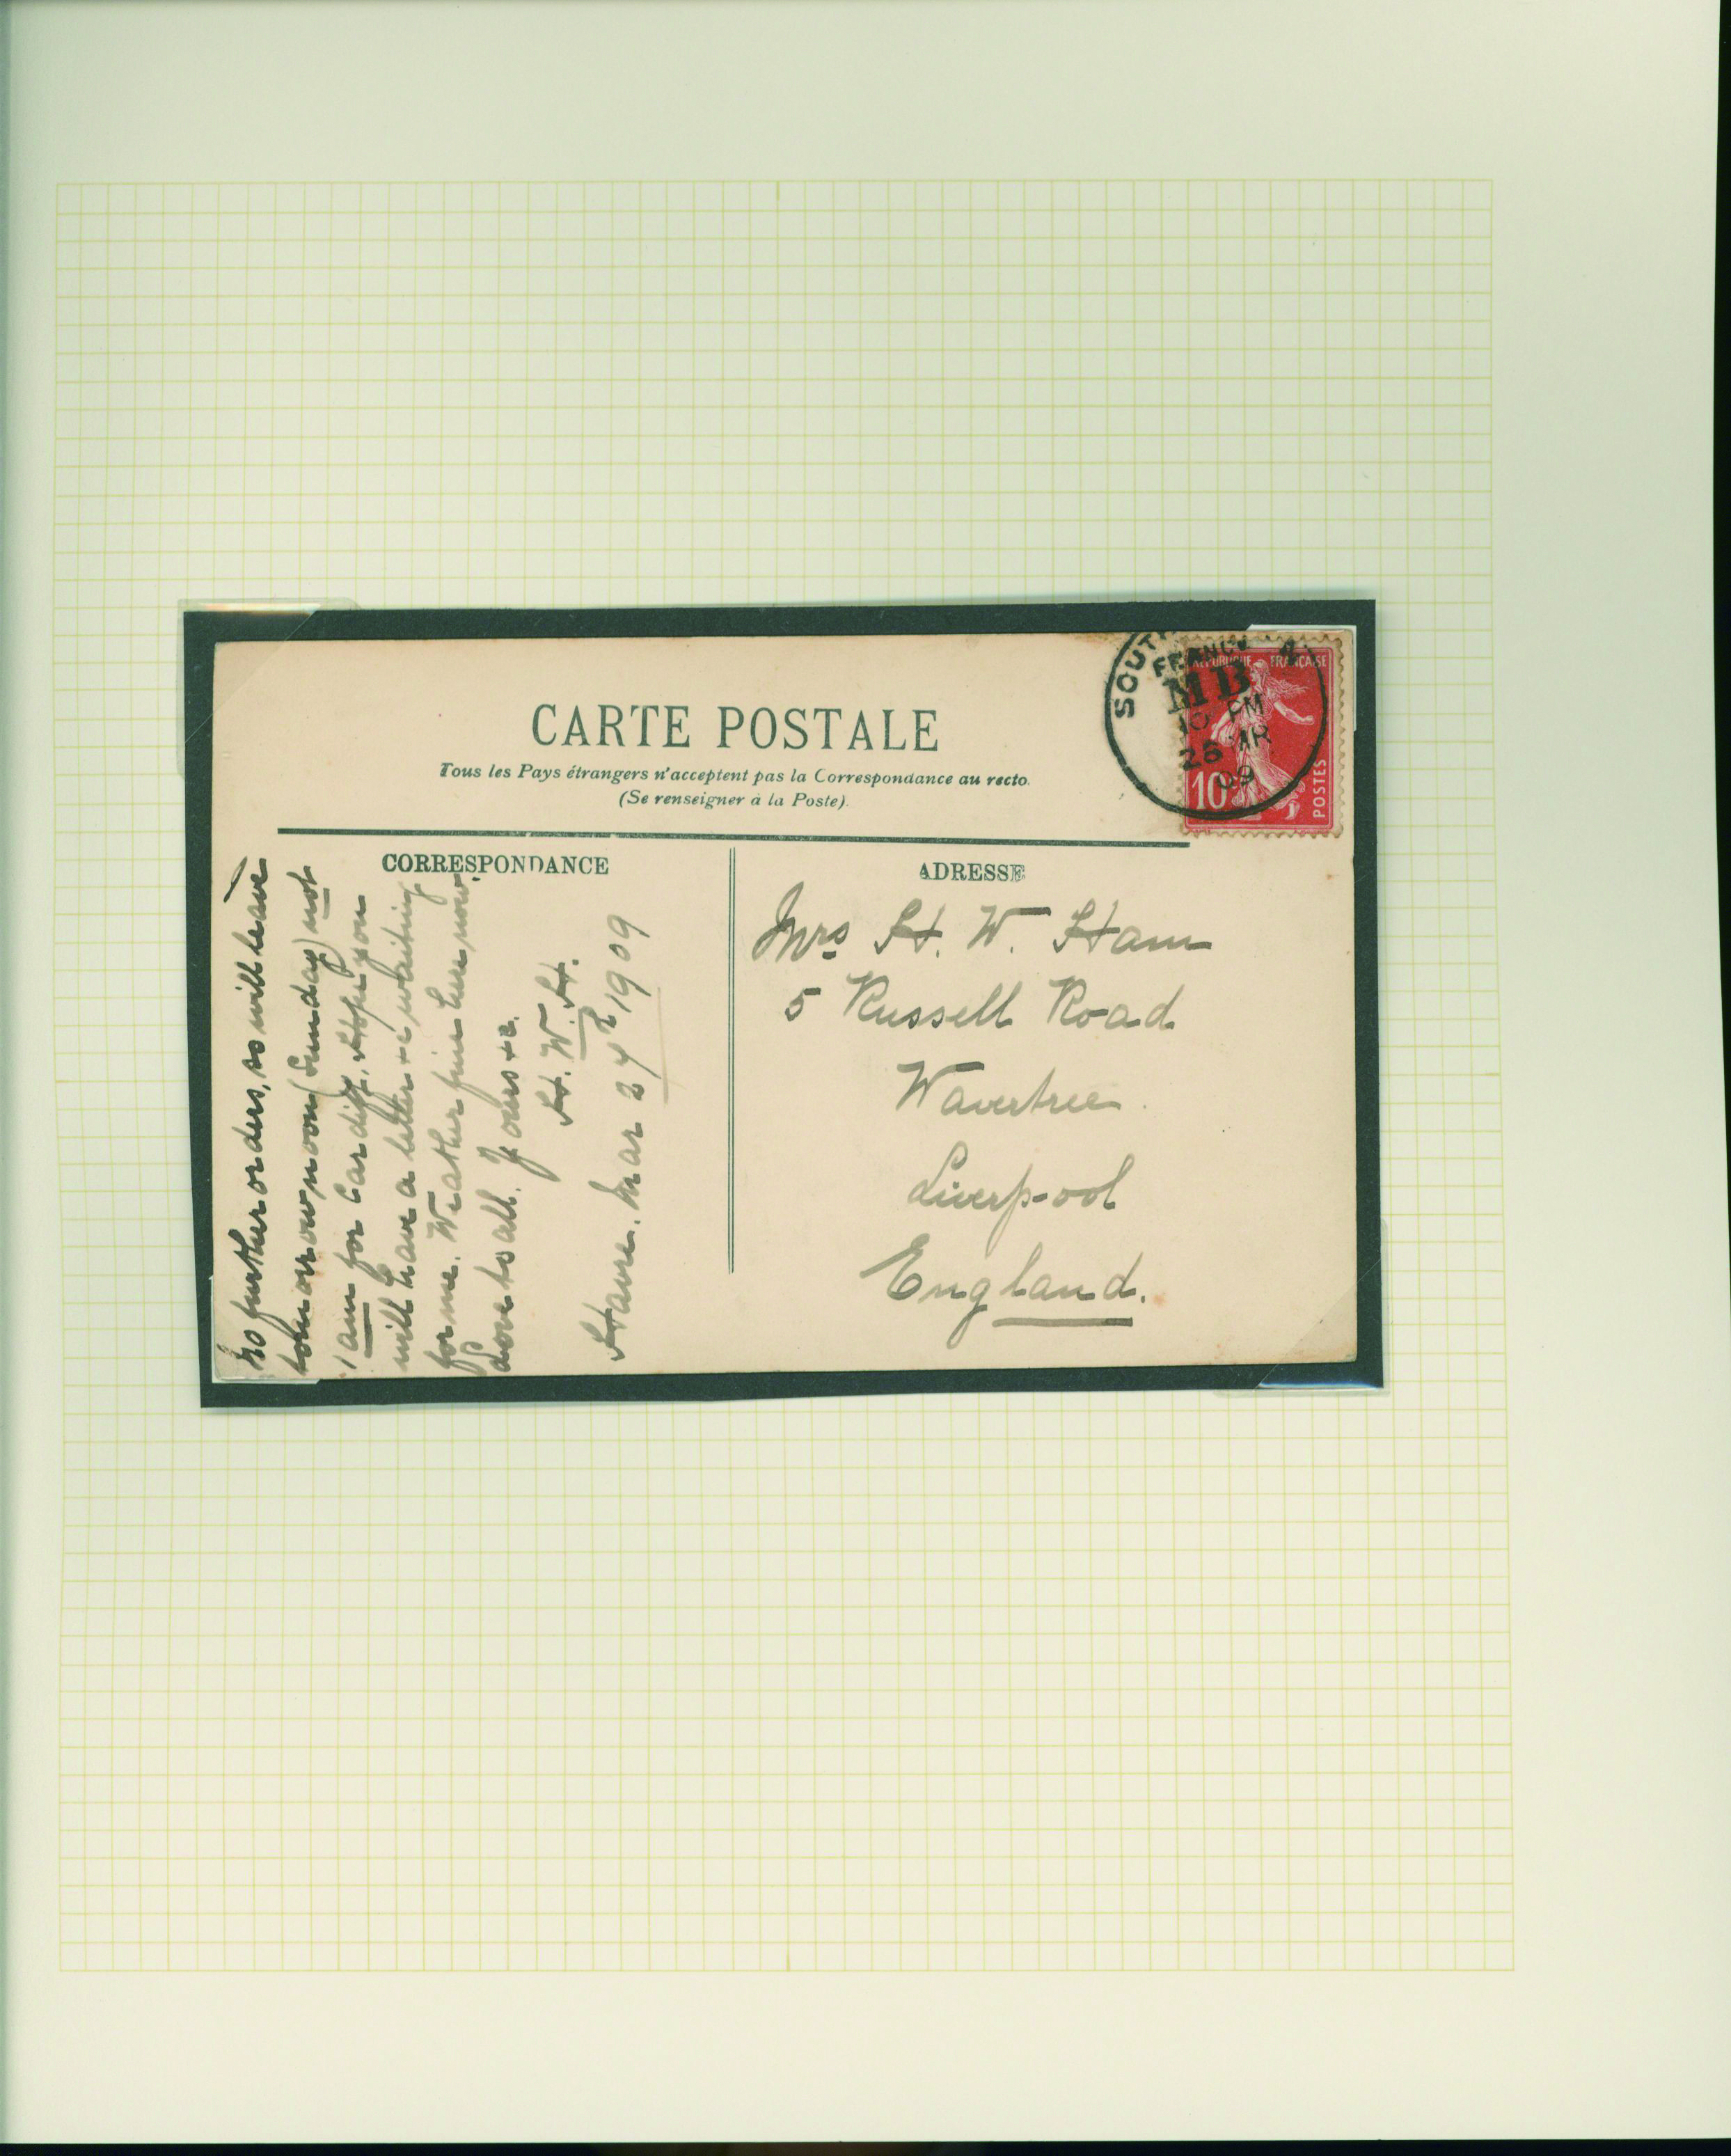 CARTE POSTALE
Tous les Pays étrangers n'acceptent pas la Correspondance au recto.
(Se renseigner à la Poste).
CORRESPONDANCE
No further orders, so will leave
tomorrow noon (Sunday) not
1 am for Cardiff. Hope you
will have a letter &c waiting
for me. Weather fine here now.
Love to all. Yours &c.
H. W. H.
Havre. Mar 27th 1909
ADRESSE
Mrs H. W. Ham
5 Russell Road
Wavertree.
Liverpool
England.
FRANCE
MB
10 PM
28 MR
09
REPUBLIQUE FRANÇAISE
10c
POSTES